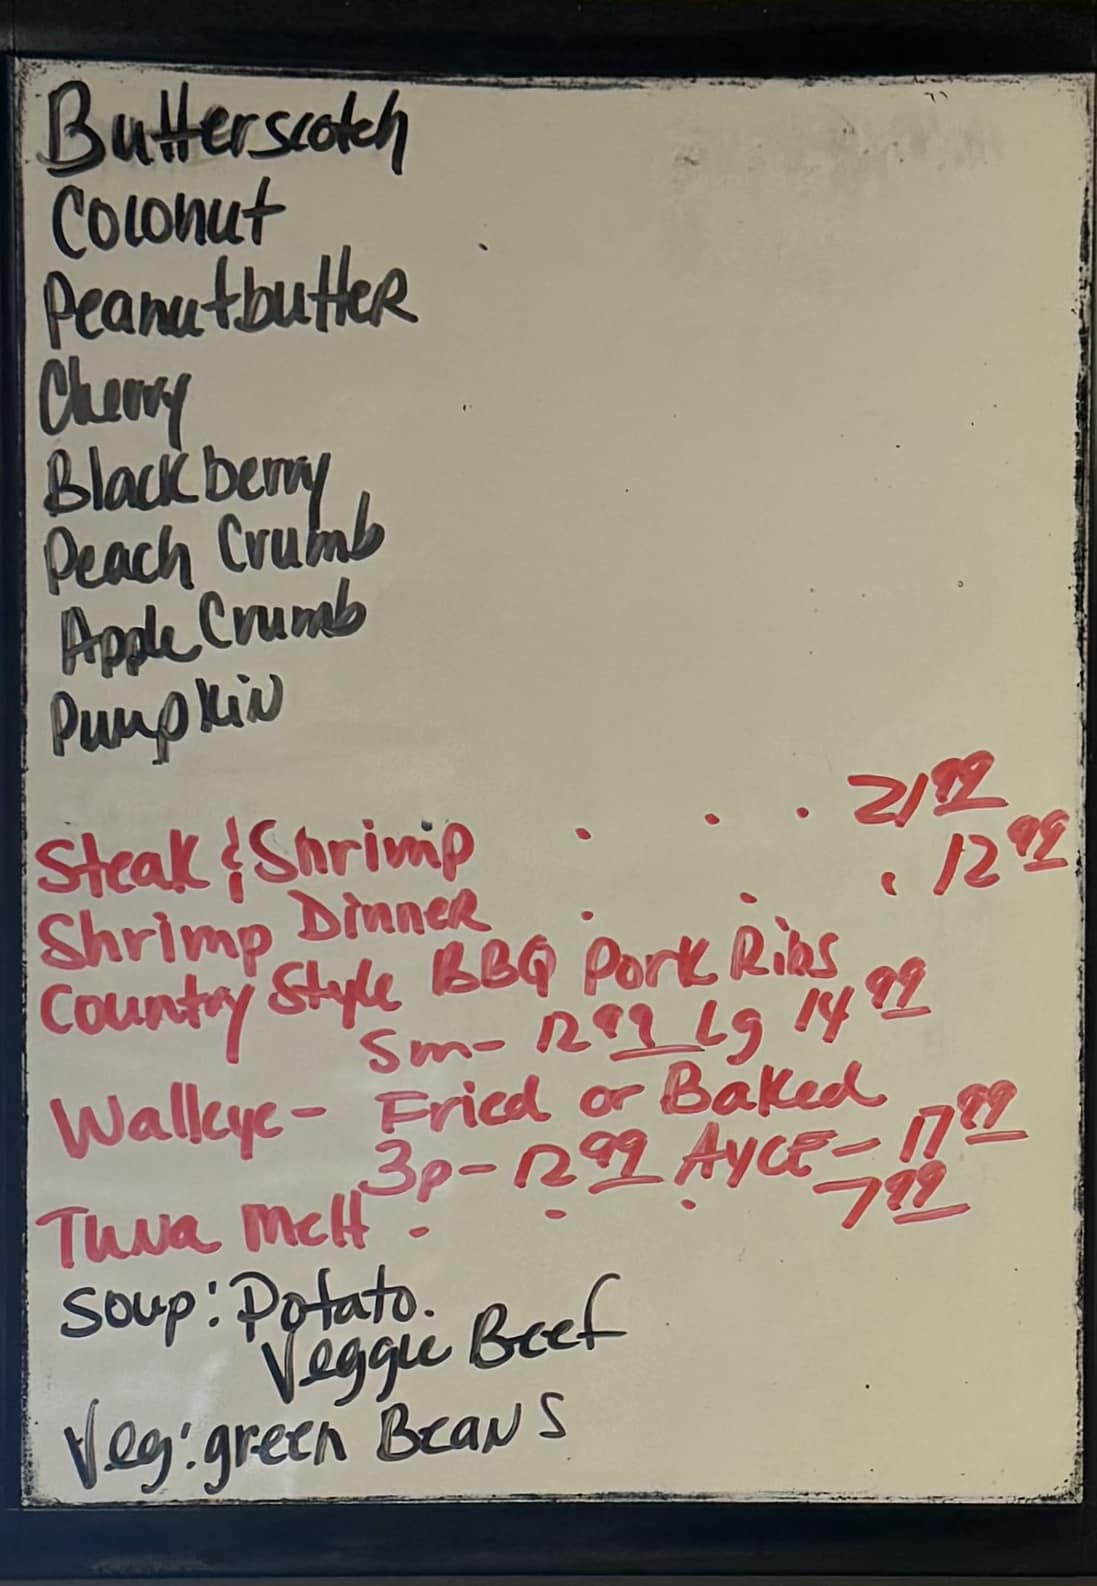 Butterscotch
Coconut
PeanutbutteR
Cherry
Blackberry
Peach Crumb
Apple Crumb
Pumpkin
Steak & Shrimp . . . 21 99
Shrimp Dinner . . . 12 99
Country Style BBQ Pork Ribs
Sm- 12 99 Lg 14 99
Walleye- Fried or Baked
3p- 12 99 AYCE- 17 99
Tuna Melt . . . 7 99
Soup: Potato.
Veggie Beef
Veg: green Beans